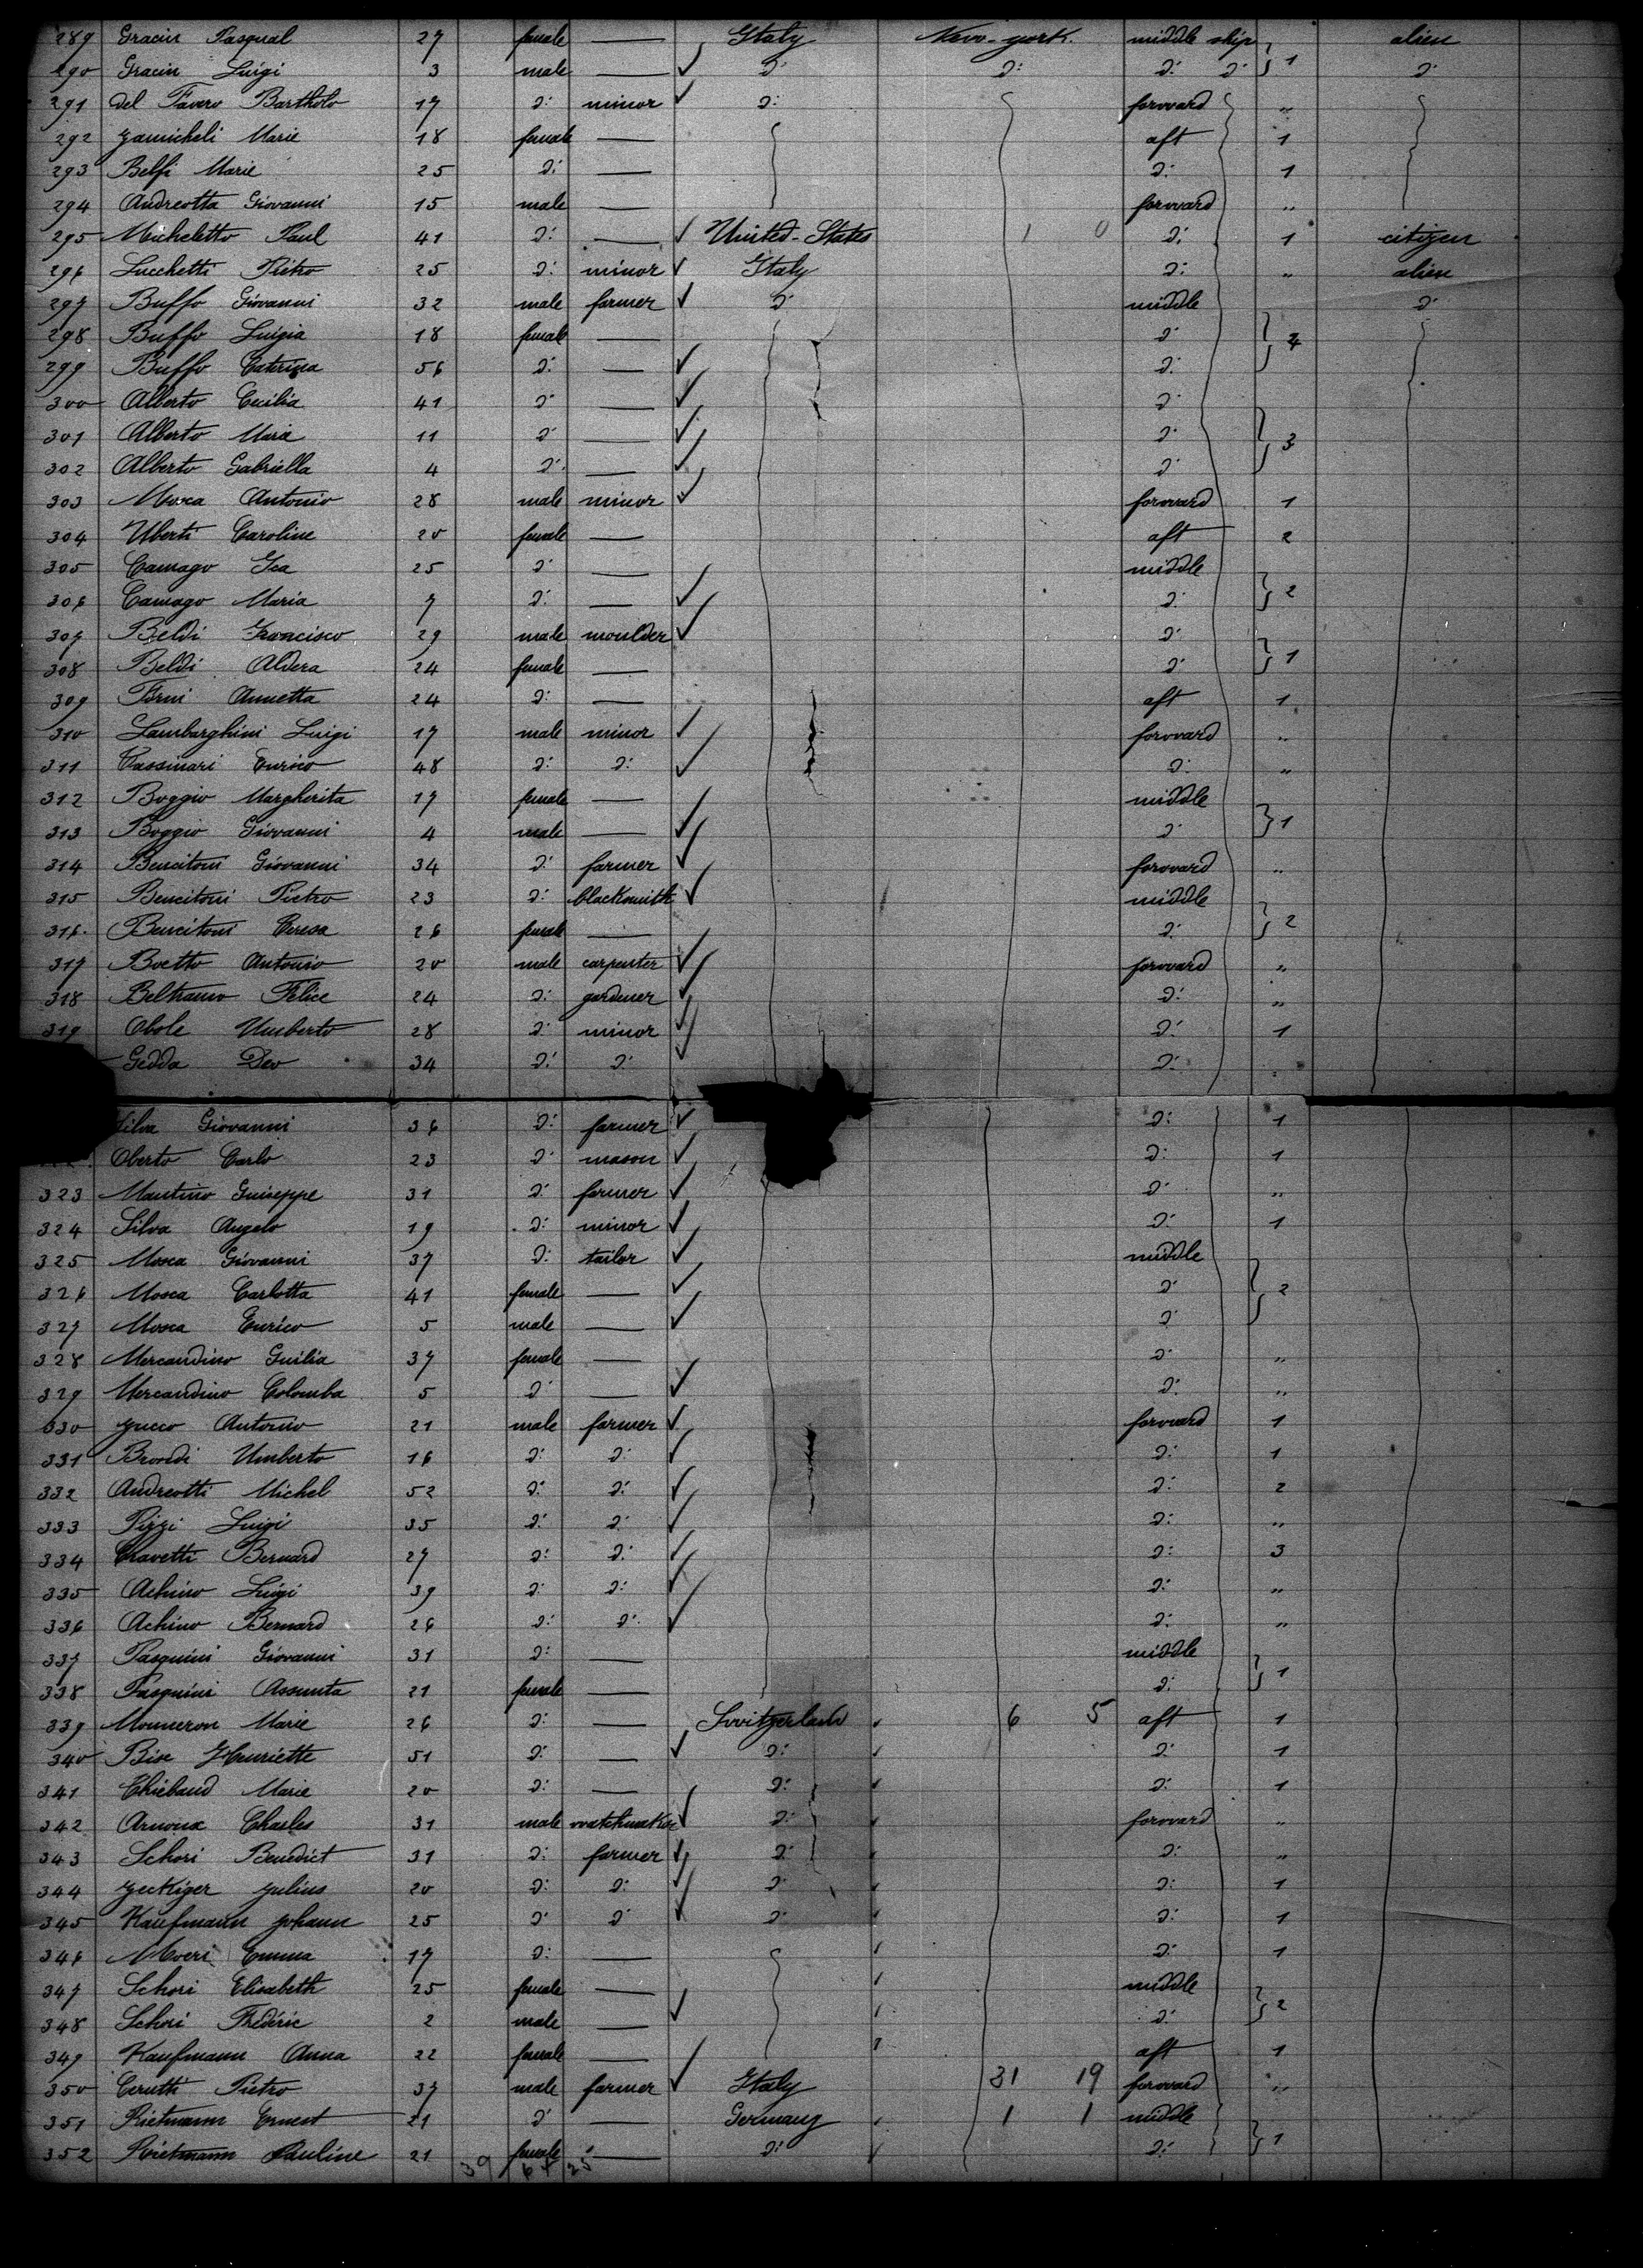 289 Gracin Pasqual 27 female — Italy New-york. middle ship alien
290 Gracin Luigi 3 male — d: d: d: d: 1 d:
291 del Favero Bartholo 17 d: minor d: forward "
292 Zamicheli Marie 18 female — aft 1
293 Belfi Marie 25 d: — d: 1
294 Andreotta Giovanni 15 male — forward "
295 Micheletto Paul 41 d: — United-States 1 0 d: 1 citizen
296 Lucchetti Pietro 25 d: minor Italy d: " alien
297 Buffo Giovanni 32 male farmer d: middle d:
298 Buffo Luigia 18 female — d:
299 Buffo Caterina 56 d: — d:
300 Alberto Cecilia 41 d: — d:
301 Alberto Marie 11 d: — d: 3
302 Alberto Gabriella 4 d: — d:
303 Mosca Antonio 28 male minor forward 1
304 Uberti Caroline 20 female — aft 2
305 Camago Isa 25 d: — middle
306 Camago Maria 7 d: — d: 2
307 Beldi Francisco 29 male moulder d:
308 Beldi Aldera 24 female — d: 1
309 Annetta 24 d: — aft 1
310 Lamborghini Luigi 17 male minor forward "
311 Cassinari Enrico 48 d: d: d: "
312 Boggio Margherita 17 female — middle
313 Boggio Giovanni 4 male — d: 1
314 Bencitoni Giovanni 34 d: farmer forward "
315 Bencitoni Pietro 23 d: blacksmith middle
316. Bencitoni Teresa 26 female — d: 2
317 Boetto Antonio 20 male carpenter forward "
318 Beltramo Felice 24 d: gardener d: "
319 Obole Umberto 28 d: minor d: 1
Gedda Dev 34 d: d: d:
Silva Giovanni 36 d: farmer d: 1
Oberto Carlo 23 d: mason d: 1
323 Mautino Guiseppe 31 d: farmer d: "
324 Silva Angelo 19 d: minor d: 1
325 Mosca Giovanni 37 d: tailor middle
326 Mosca Carlotta 41 female — d: 2
327 Mosca Enrico 5 male — d:
328 Mercandino Guilia 37 female — d: "
329 Mercandino Colomba 5 d: — d: "
330 Zucco Antonio 21 male farmer forward 1
331 Brondi Umberto 16 d: d: d: 1
332 Andreotti Michel 52 d: d: d: 2
333 Pizzi Luigi 35 d: d: d: "
334 Chavetti Bernard 27 d: d: d: 3
335 Achino Luigi 39 d: d: d: "
336 Achino Bernard 26 d: d: d: "
337 Pasquini Giovanni 31 d: — middle
338 Pasquini Assunta 21 female — d: 1
339 Monneron Marie 26 d: — Switzerland 6 5 aft 1
340 Bise Henriette 51 d: — d: d: 1
341 Thiebaud Marie 20 d: — d: d: 1
342 Arnoux Charles 31 male watchmaker d: forward "
343 Schori Benedict 31 d: farmer d: d: "
344 Julius 20 d: d: d: d: 1
345 Kaufmann Johann 25 d: d: d: d: 1
346 Moeri Emma 17 d: — d: 1
347 Schori Elisabeth 25 female — middle
348 Schori Frédéric 2 male — d: 2
349 Kaufmann Anna 22 female — aft 1
350 Cerutti Pietro 37 male farmer Italy 31 19 forward "
351 Rietmann Ernest 21 d: — Germany 1 1 middle
352 Rietmann Pauline 21 female — d: d: 1
39 64 25